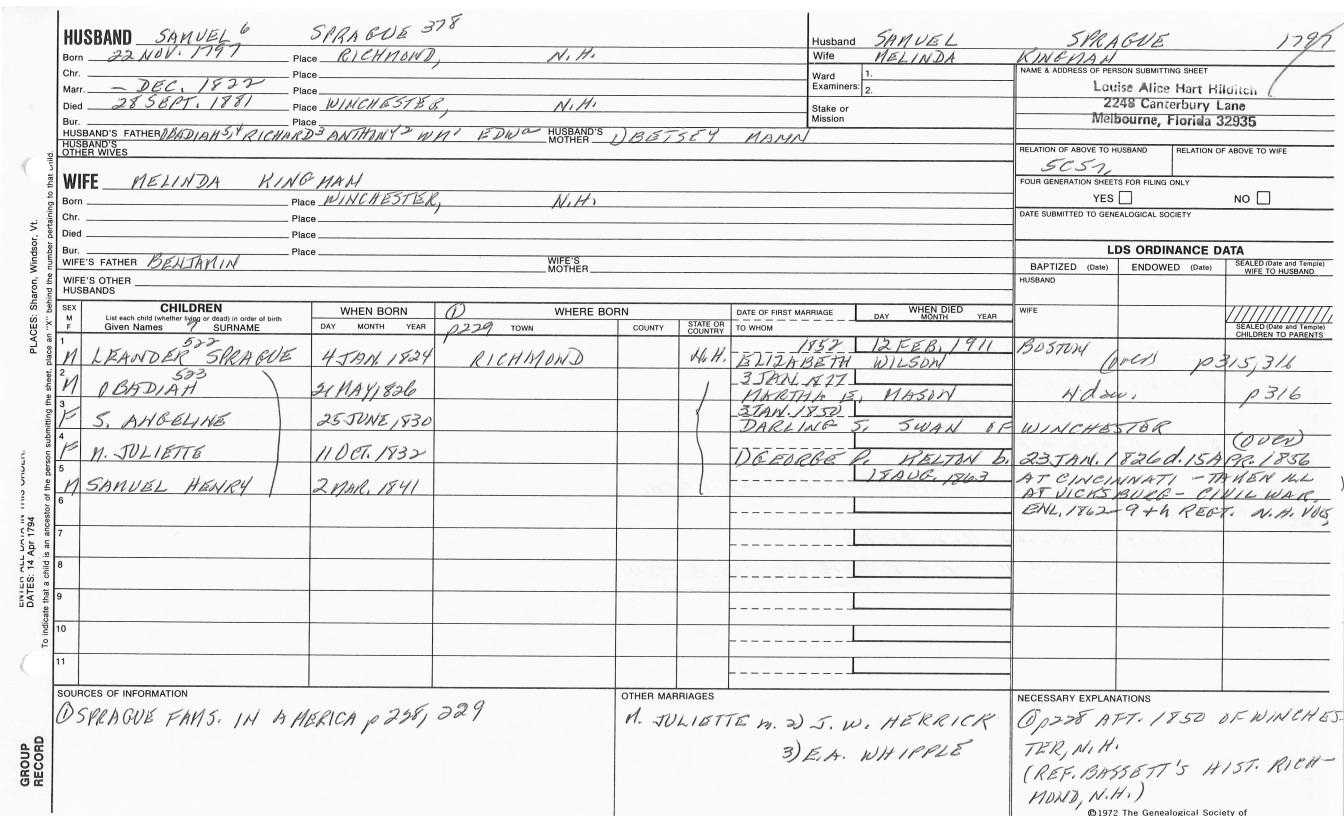 HUSBAND SAMUEL 6 SPRAGUE 378
Born 22 NOV. 1797 Place RICHMOND, N.H.
Chr. Place
Marr. — DEC. 1822 Place
Died 28 SEPT. 1881 Place WINCHESTER, N.H.
Bur. Place
HUSBAND'S FATHER OBADIAH 5,4 RICHARD 3 ANTHONY 2 WM 1 EDW a HUSBAND'S MOTHER 1) BETSEY MANN
HUSBAND'S OTHER WIVES
Husband SAMUEL SPRAGUE 1797
Wife MELINDA KINGMAN
Ward Examiners: 1.
2.
Stake or Mission
NAME & ADDRESS OF PERSON SUBMITTING SHEET
Louise Alice Hart Hilditch
2248 Canterbury Lane
Melbourne, Florida 32935
RELATION OF ABOVE TO HUSBAND RELATION OF ABOVE TO WIFE
5C5r
FOUR GENERATION SHEETS FOR FILING ONLY
YES NO
DATE SUBMITTED TO GENEALOGICAL SOCIETY
WIFE MELINDA KINGMAN
Born Place WINCHESTER, N.H.
Chr. Place
Died Place
Bur. Place
WIFE'S FATHER BENJAMIN WIFE'S MOTHER
WIFE'S OTHER HUSBANDS
LDS ORDINANCE DATA
BAPTIZED (Date) ENDOWED (Date) SEALED (Date and Temple) WIFE TO HUSBAND
HUSBAND
WIFE
SEALED (Date and Temple) CHILDREN TO PARENTS
SEX M F
CHILDREN
List each child (whether living or dead) in order of birth
Given Names 7 SURNAME
WHEN BORN
DAY MONTH YEAR
① p229
WHERE BORN
TOWN COUNTY STATE OR COUNTRY
DATE OF FIRST MARRIAGE
TO WHOM
WHEN DIED
DAY MONTH YEAR
1 M LEANDER 522 SPRAGUE 4 JAN. 1824 RICHMOND N.H. 1852 12 FEB. 1911 BOSTON
ELIZABETH WILSON (over) p315,316
2 M OBADIAH 523 21 MAY 1826 3 JAN. 1877
MARTHA E. MASON N daw. p316
3 F S. ANGELINE 25 JUNE, 1830 3 JAN. 1850
DARLING S. SWAN OF WINCHESTER
4 F M. JULIETTE 11 OCT. 1832 (OVER)
1) GEORGE P. KELTON b. 23 JAN. 1826 d. 15 APR. 1856
5 M SAMUEL HENRY 2 MAR. 1841 18 AUG. 1863 AT CINCINNATI - TAKEN ILL
AT VICKSBURG - CIVIL WAR.
ENL. 1862 - 9th REGT. N.H. VOL.
6
7
8
9
10
11
SOURCES OF INFORMATION
① SPRAGUE FAMS. IN AMERICA p 228, 229
OTHER MARRIAGES
M. JULIETTE m. 2) J. W. HERRICK
3) E.A. WHIPPLE
NECESSARY EXPLANATIONS
① p228 AFT. 1850 OF WINCHES-
TER, N.H.
(REF. BASSETT'S HIST. RICH-
MOND, N.H.)
©1972 The Genealogical Society of
PLACES: Sharon, Windsor, Vt.
ENTER ALL DATA IN THIS ORDER:
DATES: 14 Apr 1794
To indicate that a child is an ancestor of the person submitting the sheet, place an "X" behind the number pertaining to that child.
GROUP
RECORD